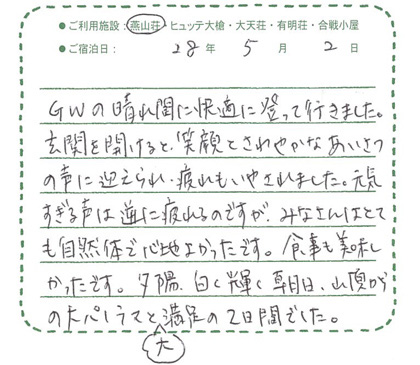 ●ご利用施設：燕山荘・ヒュッテ大槍・大天荘・有明荘・合戦小屋
●ご宿泊日： 28 年 5 月 2 日
GWの晴れ間に快適に登って行きました。
玄関を開けると、笑顔とさわやかなあいさつ
の声に迎えられ、疲れもいやされました。元気
すぎる声は逆に疲れるのですが、みなさんはとて
も自然体で心地よかったです。食事も美味し
かったです。夕陽、白く輝く朝日、山頂から
の大パノラマと大満足の2日間でした。